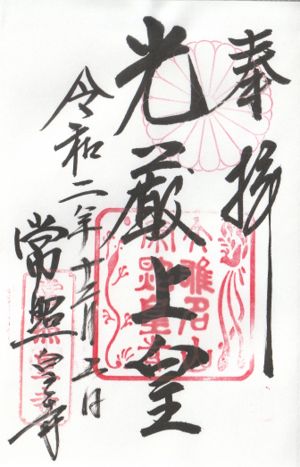 奉拝
光厳上皇
令和二年十二月五日
常照皇寺